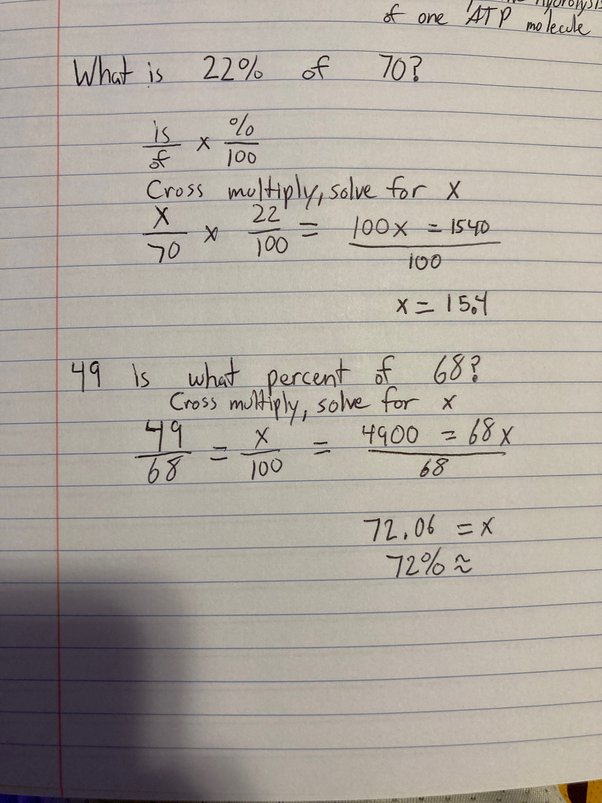 Hydrolysis
of one ATP molecule
What is 22% of 70?
is/of × %/100
Cross multiply, solve for x
x/70 × 22/100 = 100x = 1540/100
x = 15.4
49 is what percent of 68?
Cross multiply, solve for x
49/68 = x/100 = 4900 = 68x/68
72.06 = x
72% ≈